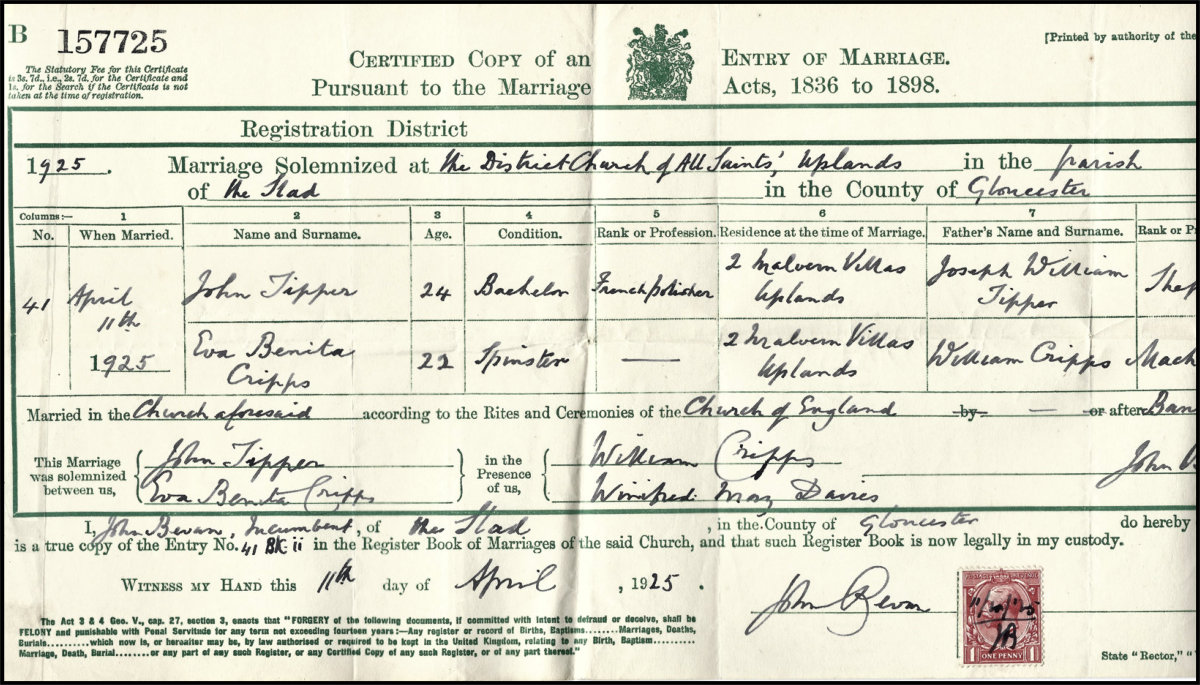 B 157725
The Statutory Fee for this Certificate
is 3s. 7d., i.e., 2s. 7d. for the Certificate and
1s. for the Search if the Certificate is not
taken at the time of registration.
CERTIFIED COPY OF AN ENTRY OF MARRIAGE.
Pursuant to the Marriage Acts, 1836 to 1898.
[Printed by authority of the
Registration District
1925. Marriage Solemnized at the District Church of All Saints', Uplands in the parish
of the Slad in the County of Gloucester
Columns:— 1 2 3 4 5 6 7
No. When Married. Name and Surname. Age. Condition. Rank or Profession. Residence at the time of Marriage. Father's Name and Surname. Rank or P
41 April 11th 1925 John Tipper 24 Bachelor French polisher 2 Malvern Villas Uplands Joseph William Tipper
Eva Benita Cripps 22 Spinster — 2 Malvern Villas Uplands William Cripps Mach
Married in the Church aforesaid according to the Rites and Ceremonies of the Church of England by — or after Ban
This Marriage was solemnized between us, John Tipper Eva Benita Cripps in the Presence of us, William Cripps Winifred May Davies John
I, John Bevan, Incumbent, of the Slad, in the County of Gloucester do hereby
is a true copy of the Entry No. 41 Bk ii in the Register Book of Marriages of the said Church, and that such Register Book is now legally in my custody.
WITNESS MY HAND this 11th day of April, 1925.
John Bevan
JB
ONE PENNY
1 1
The Act 3 & 4 Geo. V., cap. 27, section 3, enacts that "FORGERY of the following documents, if committed with intent to defraud or deceive, shall be
FELONY and punishable with Penal Servitude for any term not exceeding fourteen years:—Any register or record of Births, Baptisms........Marriages, Deaths,
Burials..........which now is, or hereafter may be, by law authorised or required to be kept in the United Kingdom, relating to any Birth, Baptism..........
Marriage, Death, Burial........or any part of any such Register, or any Certified Copy of any such Register, or of any part thereof."
State "Rector,"